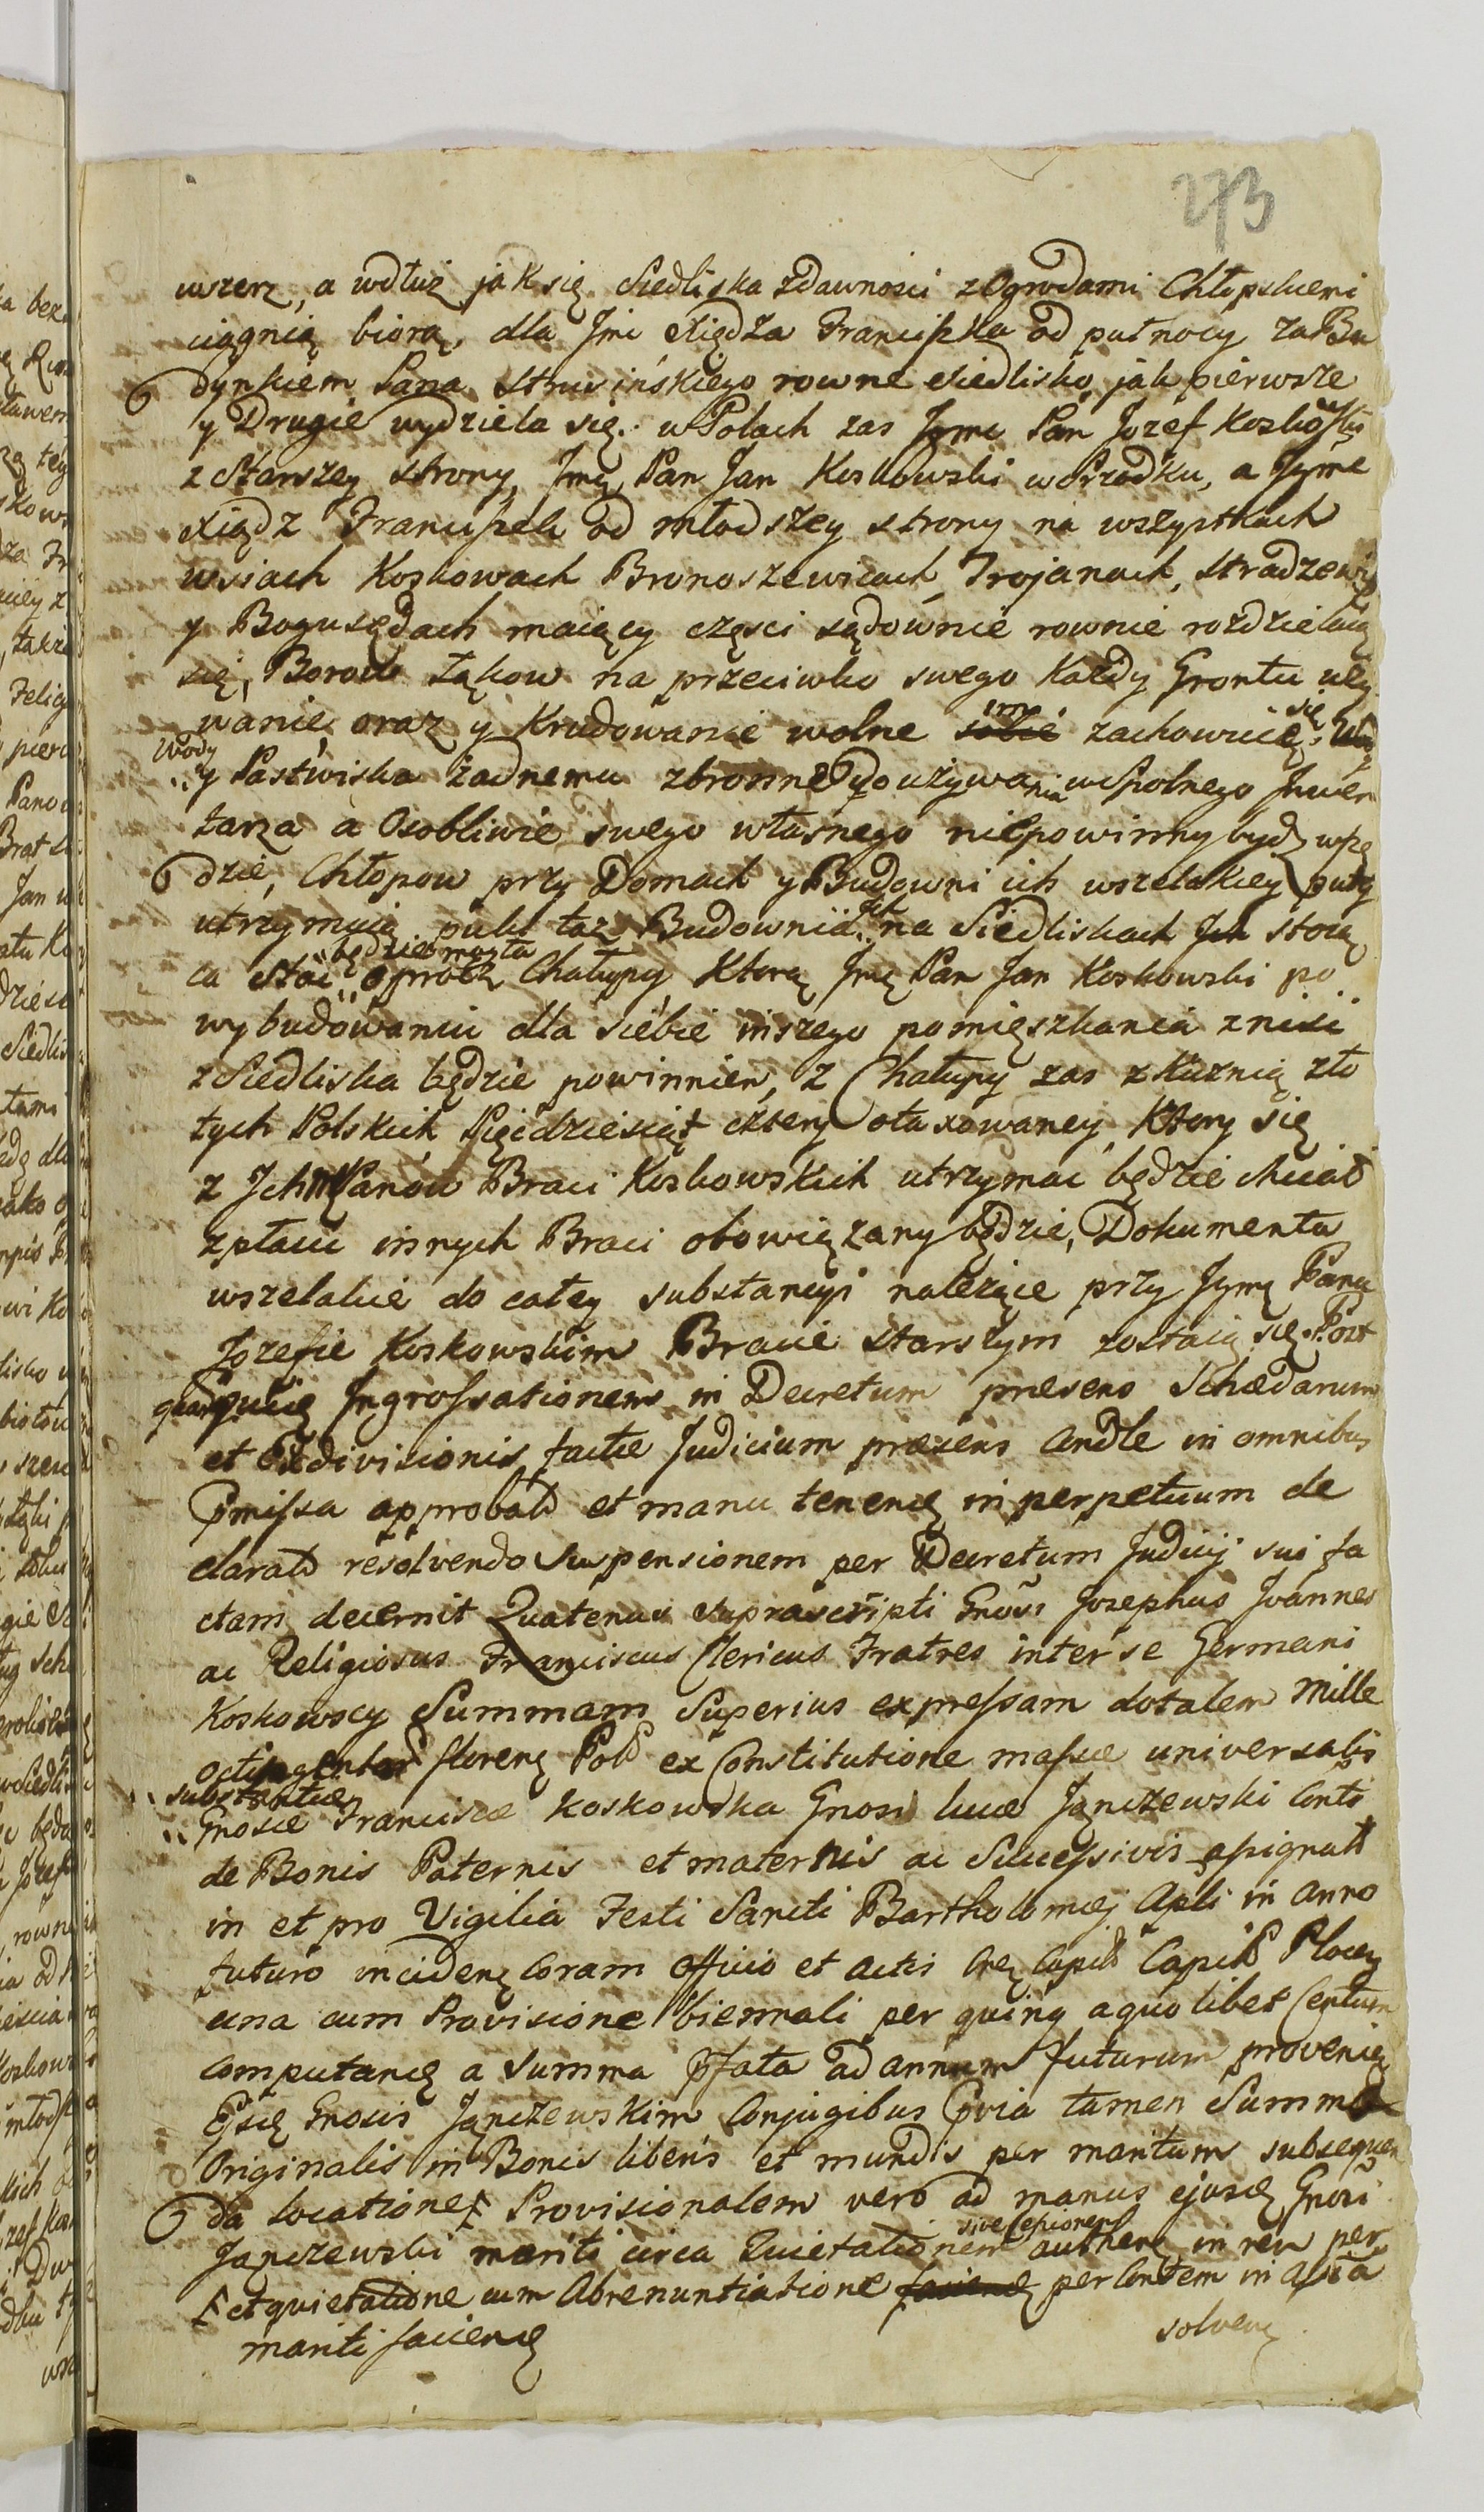 273
wszerz, a wdłuż jak się Siedliska zdawności z Ogrodami Chłopskiemi
ciągnią biorą, dla Jmć Xiędza Franciszka od pułnocy za Bu
dynkiem Pana Strusińskiego rowne siedlisko jak pierwsze
y Drugie wydziela się. w Polach zas Jymć Pan Jozef Koskowski
z Starszey strony, Jmę Pan Jan Koskowski w Srzodku, a Jyme
Xiądz Franciszek od młodszey strony na wszystkach
wsiach Koskowach Bronoszewicach, Trojanach, Stradzewie
y Bogusędach maiący części sądownie rownie rozdzielaią
się, Borow Łąkow na przeciwko swego każdy Grontu uży
wanie oraz y Krudowanie wolne sobie im zachowuie się,
Wody
y Pastwiska żadnemu zbronne do używania wspolnego Inwen
tarza a Osobliwie swego własnego niepowinny bydz wszę
dzie, Chłopow przy Domach y Budowni ich wszelakiey puty
utrzymuią puki taż Budownia ich na Siedliskach Ich stoią
ca Stać będzie mogła oprocz Chałupy Ktorą Jmę Pan Jan Koskowski po
wybudowaniu dla siebie inszego pomięszkania zniść
z Siedliska będzie powinnien, z Chałupy zas z Kuznią zło
tych Polskich Pięćdziesiąt cztery otaxowaney, Ktory się
z Ichm Panow Braci Koskowskich utrzymać będzie chciał
zpłacić innych Braci obowiązany będzie, Dokumenta
wszelakie do całey substancyi należące przy Jymę Panu
Jozefie Koskowskim Bracie starszym zostaią się. Post
quam quidę Ingrossationem in Decretum presens Schedarum
et Exdivisionis factæ Judicium præsens Condle in omnibus
Pmissa approbat et manu tenenę in perpetuum de
clarat resolvendo Suspensionem per Decretum Judicij sui fa
ctam decernit Quatenus suprascripti Gnosi Josephus Joannes
ac Religiosus Franciscus Clericus Fratres inter se Germani
Koskowscy Summam Superius expressam dotalem Mille
Octingentor florenę Pol ex Constitutione massæ universalis
substantiæ
Gnosæ Francisce Koskowska Gnosi Lucæ Jączewski Conti
de Bonis Paternis et maternis ac Successivis assignat
in et pro Vigilia Festi Sancti Bartholomæj Apli in anno
futuro incidenę Coram Officio et actis Capit Plocen
una cum Provisione biennali per quinq a quolibet Centum
Computanę a Summa pfata ad annum futurum provenię
Ejsdę Gnosis Jączewskim Conjugibus Pvia tamen Summæ
Originalis in Bonis liberis et mundis per maritum subsequen
da locatione Ⱡ Provisionalem vero ad manus ejusdę Gnosi
Jączewski mariti circa Quietationem sive Cessionem authenę in rem per
Ⱡ et quietatione cum Abrenuntiatione facienę per Contem in assa
mariti facienę
solvenę